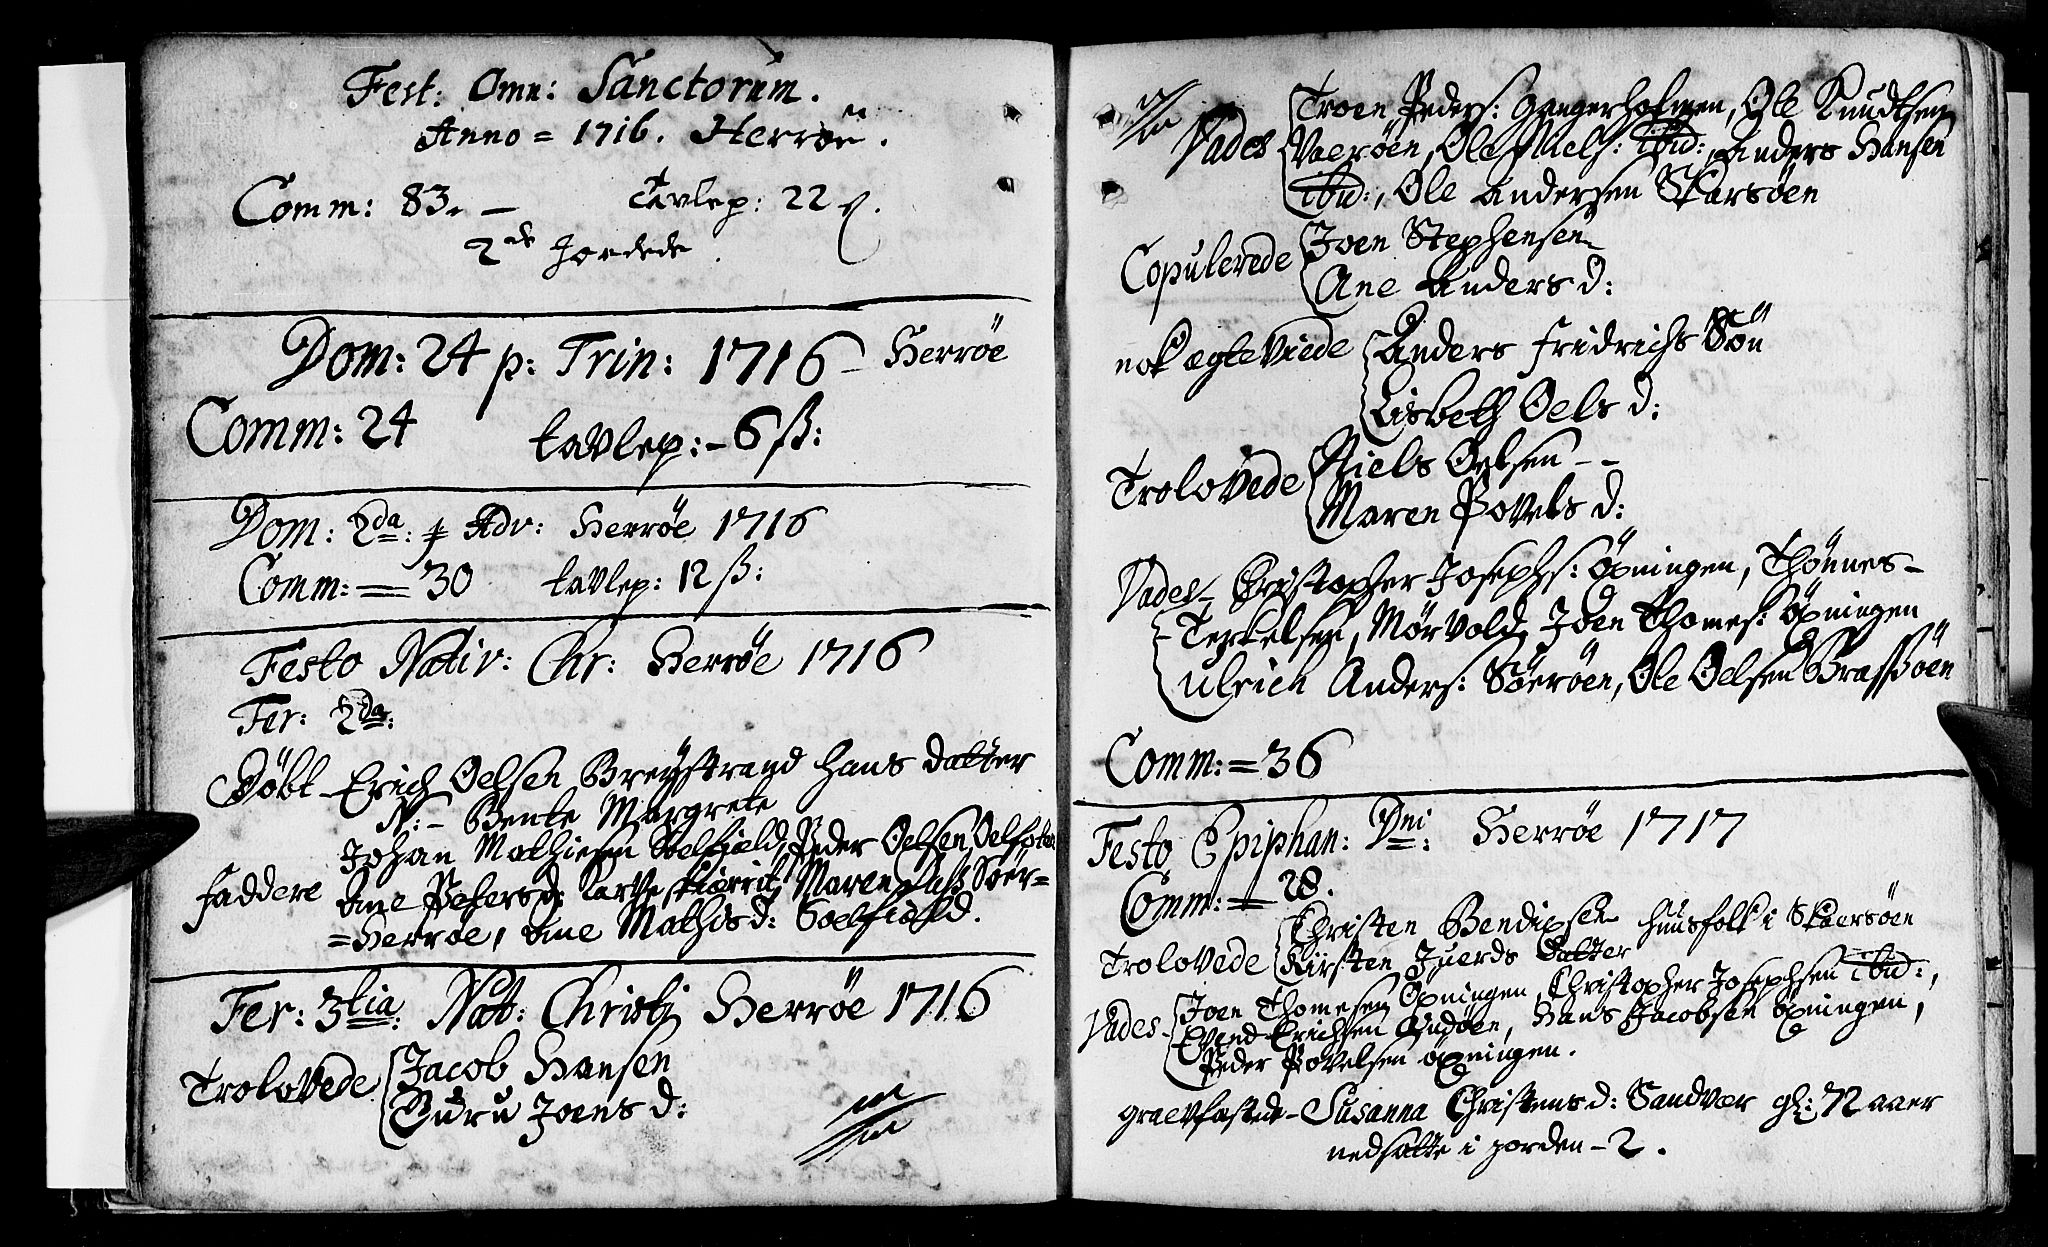 Fest: Omn: Sanctorum.
Anno = 1716. Herröen.
Comm: 83. — tavlep: 22 ß.
2de Jordede.
Dom: 24 p: Trin: 1716 – Herröe
Comm: 24 tavlep: – 6 ß:
Dom: 2da: Adv: Herröe 1716
Comm: = 30 tavlep: 12 ß:
Festo Nativ: Chr: Herröe 1716
Fer: 2da:
Döbt – Erich Oelsen Breystrand hans datter
N: – Bente Margrete
Johan Mathiesen Sælfiæld, Peder Oelsen
Faddere Ane Petersd: Maren Söer=
=Herröe, Ane Mathisd: Soelfiæld.
Fer: 3tia: Nat: Christi Herröe 1716
Trolovede Jacob Hansen
Guru Joensd:
Vades Troen Peders: Gangerholmen, Ole Knudtsen
Vaeröen, Ole Niels: ibid:, Anders Hansen
ibid:, Ole Andersen Skarsöen
Copulerede Joen Stephensen
Ane Anders d:
nok ægteviede Anders Fridrichs Sön
Lisbeth Oels d:
Trolovede Niels Oelsen – –
Maren Povels d:
Vades – Christopher Josephs: Öxningen, Thönnes –
– Terkelsen, Mörvold, Joen Thomes: Öxningen
Ulrich Anders: Söeröen, Ole Oelsen Brassöen
Comm: = 36
Festo Epiphan: Dni: Herröe 1717
Comm: = 28.
Trolovede Christen Bendixsen huusfolk i Skaersöen
Kirsten Juerds datter
Vades – Joen Thomesen Öxningen, Christopher Josephsen ibid:,
Evend Erichsen Andöen, Hans Jacobsen Öxningen,
Peder Povelsen Öxningen.
graevfæstede – Susanna Christensd: Sandvær gl: 72 aaer
nedsatte i jorden – 2.